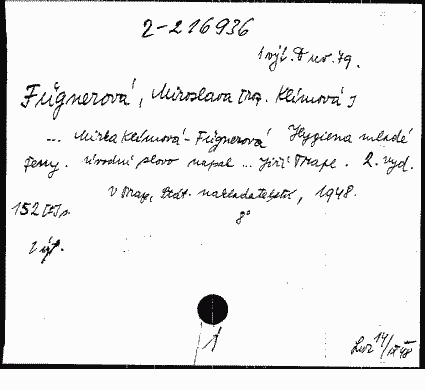 2-216936
1 výt. F nov. 79.
Fügnerová, Miroslava [roz. Klímová]
... Mirka Klímová-Fügnerová Hygiena mladé
ženy. Úvodní slovo napsal ... Jiří Trapl. 2. vyd.
V Praze, Stát. nakladatelství, 1948.
152 [I] s. 8°
2 výt.
1
14/IX 48